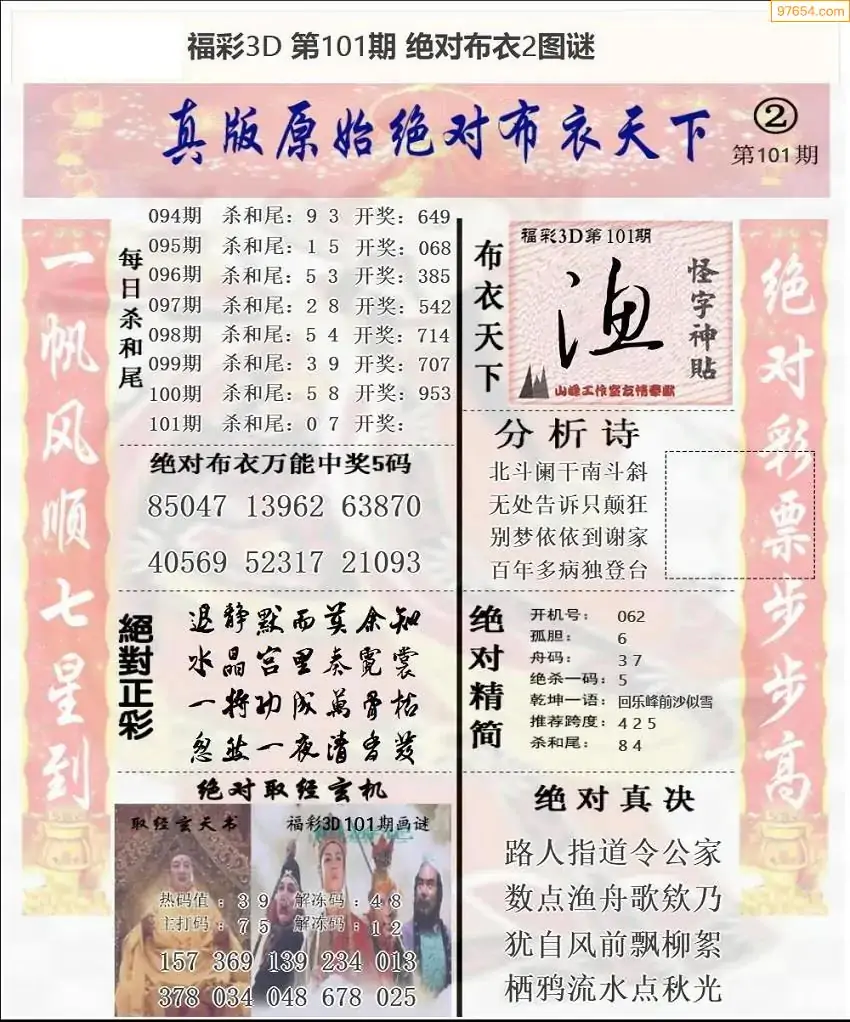 97654.com
福彩3D 第101期 绝对布衣2图谜
真版原始绝对布衣天下
②
第101期
一帆风顺七星到
每日杀和尾
094期 杀和尾：9 3 开奖：649
095期 杀和尾：1 5 开奖：068
096期 杀和尾：5 3 开奖：385
097期 杀和尾：2 8 开奖：542
098期 杀和尾：5 4 开奖：714
099期 杀和尾：3 9 开奖：707
100期 杀和尾：5 8 开奖：953
101期 杀和尾：0 7 开奖：
绝对布衣万能中奖5码
85047 13962 63870
40569 52317 21093
絕對正彩
退静默而莫余知
水晶宫里奏霓裳
一将功成萬骨枯
忽然一夜清香发
绝对取经玄机
取经玄天书
福彩3D101期画谜
热码值：3 9 解冻码：4 8
主打码：7 5 解冻码：1 2
157 369 139 234 013
378 034 048 678 025
布衣天下
福彩3D第101期
渔
怪字神贴
山峰工作室友情奉献
分析诗
北斗阑干南斗斜
无处告诉只颠狂
别梦依依到谢家
百年多病独登台
绝对精简
开机号： 062
孤胆： 6
舟码： 3 7
绝杀一码：5
乾坤一语：回乐峰前沙似雪
推荐跨度：4 2 5
杀和尾： 8 4
绝对真决
路人指道令公家
数点渔舟歌欸乃
犹自风前飘柳絮
栖鸦流水点秋光
绝对彩票步步高